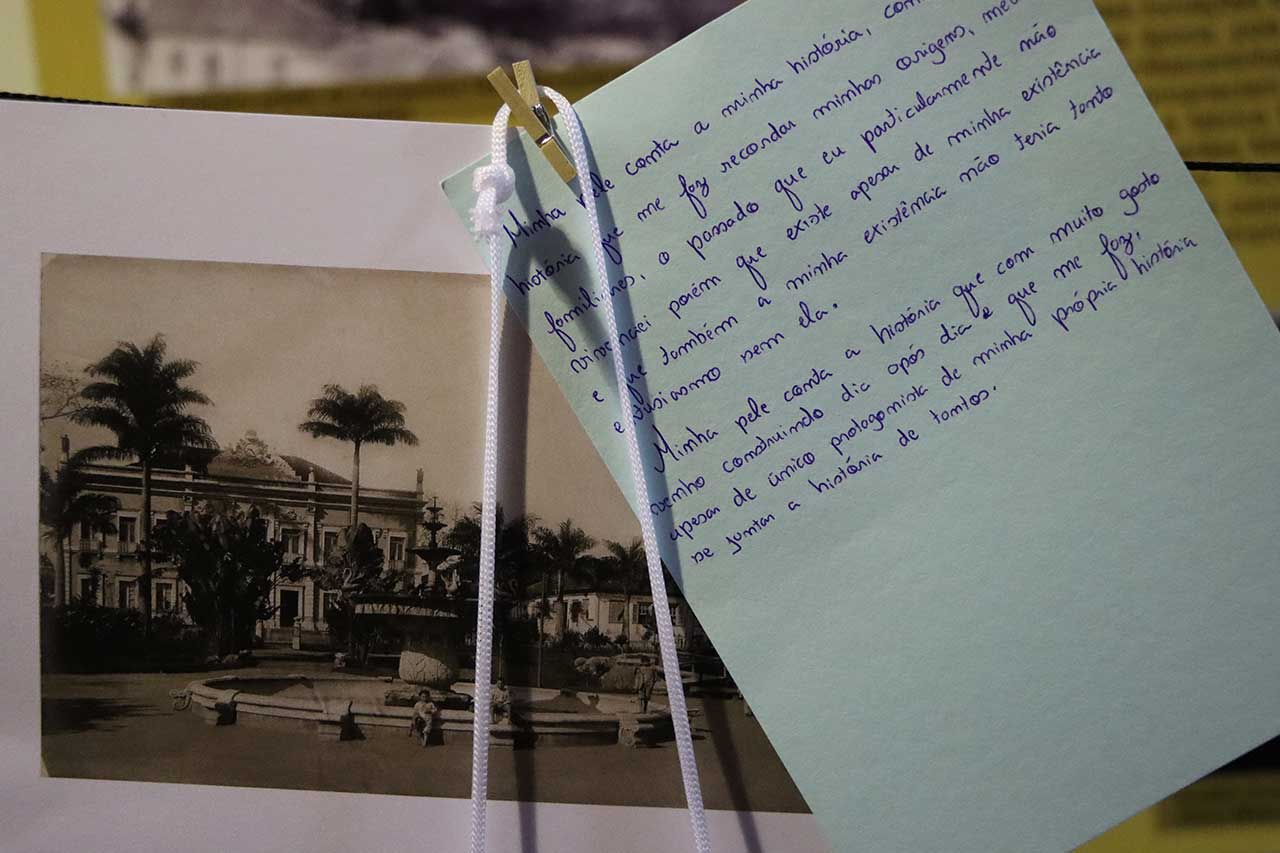 Minha pele conta a minha história, com
história que me faz recordar minhas origens, meus
familiares, o passado que eu particularmente não
vivenciei porém que existe apesar de minha existência
e que também a minha existência não teria tanto
entusiasmo sem ela.
Minha pele conta a história que com muito gosto
venho construindo dia após dia e que me faz,
apesar de único protagonista de minha própria história
se juntar a história de tantos.